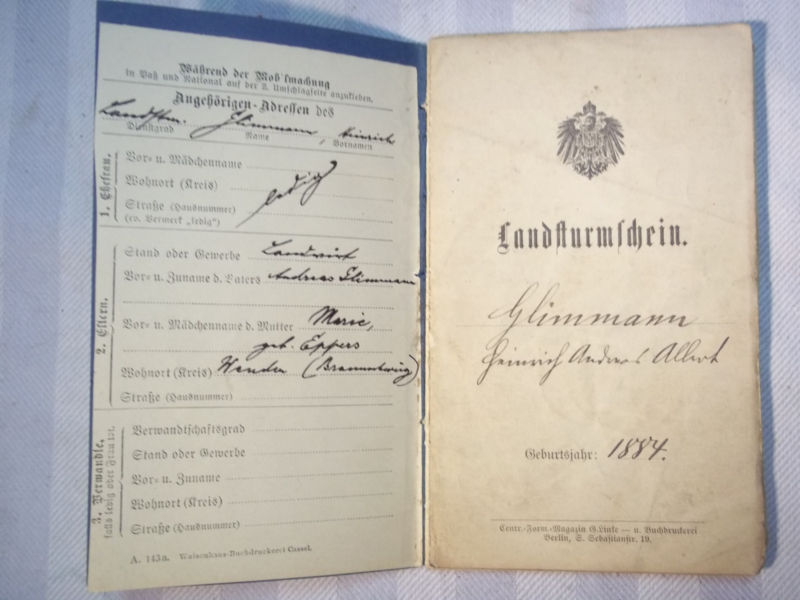 Während der Mobilmachung
in Paß und National auf der 2. Umschlagseite anzukleben.
Angehörigen-Adressen des
Landstm. Glimmann, Heinrich
Dienstgrad Name Vornamen
1. Ehefrau.
Vor- u. Mädchenname
Wohnort (Kreis)
ledig
Straße (Hausnummer)
(ev. Vermerk „ledig")
2. Eltern.
Stand oder Gewerbe Landwirt
Vor- u. Zuname d. Vaters Andreas Glimmann
Vor- u. Mädchenname d. Mutter Marie,
geb. Eppers
Wohnort (Kreis) Wenden (Braunschweig)
Straße (Hausnummer)
3. Verwandte,
falls ledig oder Frau tot.
Verwandtschaftsgrad
Stand oder Gewerbe
Vor- u. Zuname
Wohnort (Kreis)
Straße (Hausnummer)
A. 143a. Waisenhaus-Buchdruckerei Cassel.
Landsturmschein.
Glimmann
Heinrich Andreas Albert
Geburtsjahr: 1884.
Centr.-Form.-Magazin G. Linke — u. Buchdruckerei
Berlin, S. Sebastianstr. 19.